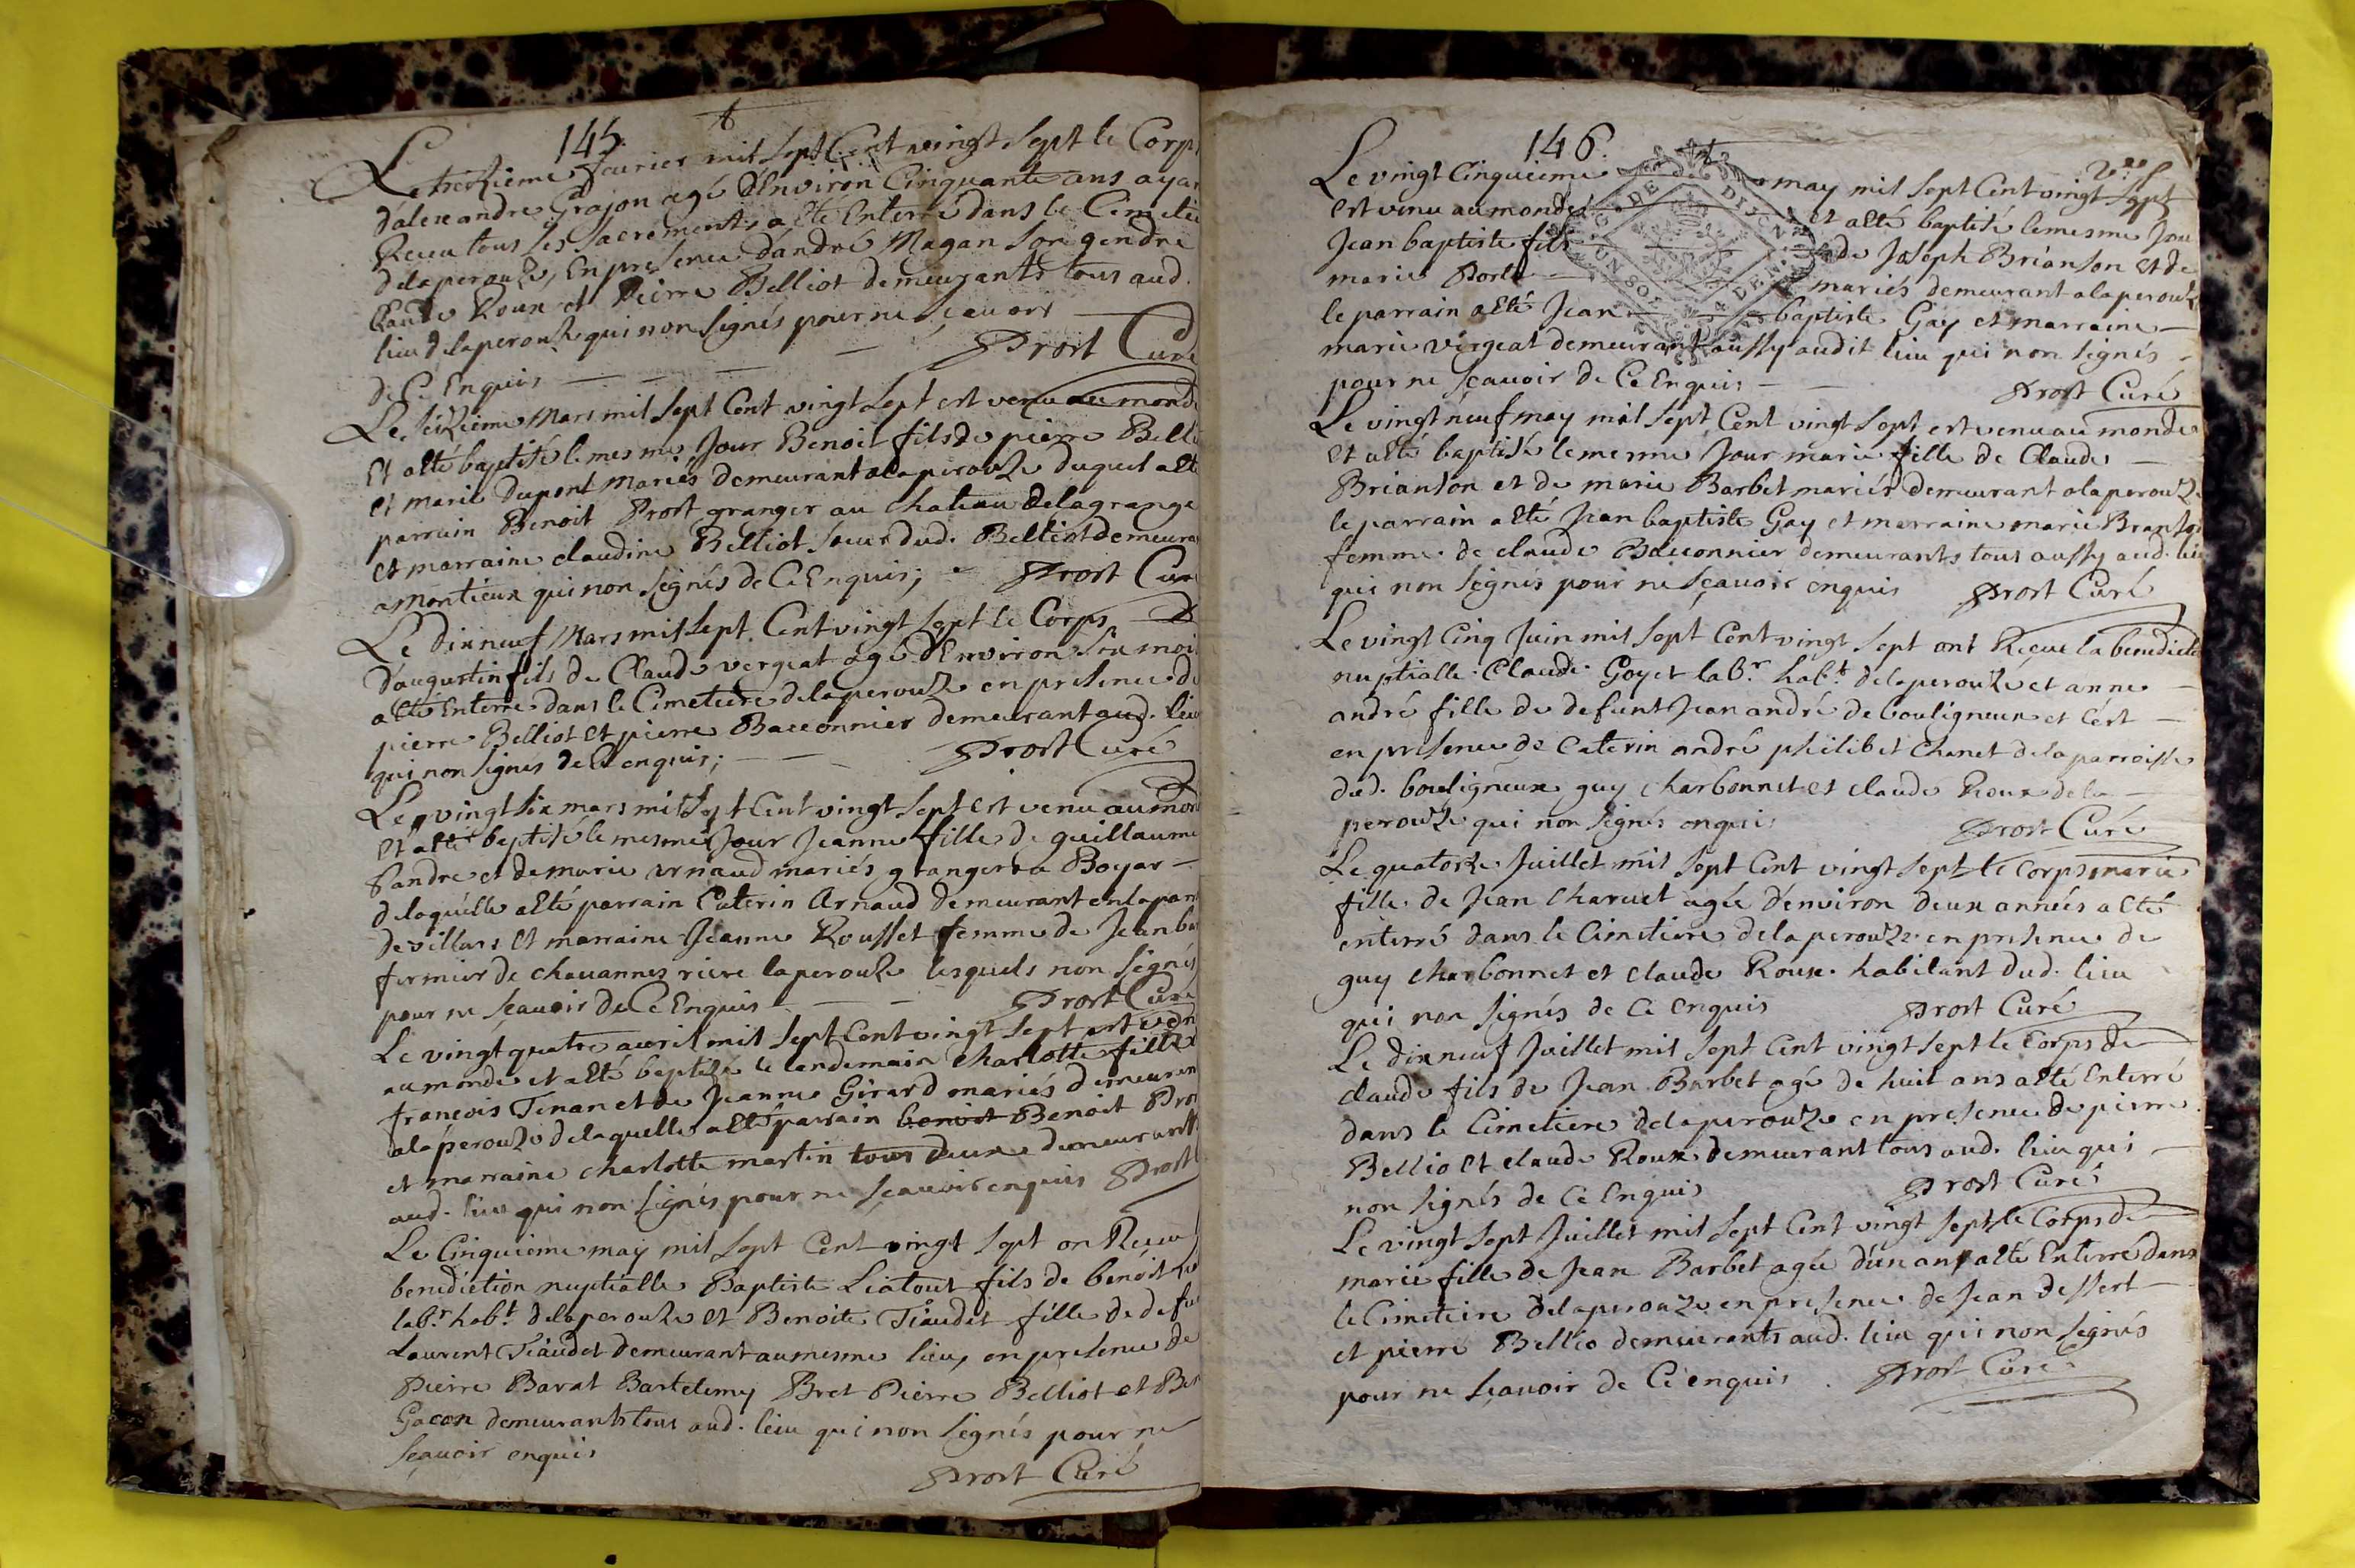 145
Le treizieme feurier mil sept Cent vingt sept le Corps
d'alexandre Grajon agé d'Environ Cinquante ans ayan
Receu tous les sacrements a eté Enterré dans le Cimetie
delaperouze, En presence d'andré Magan son gendre
Claude Roux et Pierre Belliot demeurants tous aud.
lieu delaperouze qui non signés pour ne sçauoir
de Ce Enquis Prost Curé
Le seizieme Mars mil sept Cent vingt sept est venu au monde
Et a eté baptisé le mesme Jour Benoit fils de pierre Belli
et marie Dupont Mariés demeurant a laperouze duquel a eté
parrain Benoit Prost granger au Chateau delagrange
et marraine claudine Belliot sœur dud. Belliot demeura
a Montieux qui non signés de Ce Enquis; Prost Curé
Le dix neuf Mars mil sept Cent vingt sept le Corps
d'augustin fils de Claude vergeat agé d'Environ six moi
a eté Enterré dans le Cimetiere delaperouze en presence de
pierre Belliot et pierre Baconnier demeurant aud. lieu
qui non signés de Ce enquis; Prost Curé
Le vingt six mars mil sept Cent vingt sept est venu au mon
Et a eté baptisé le mesme Jour Jeanne fille de guillaume
Pandre et de marie arnaud mariés grangers a Boyar
delaquelle a eté parrain Caterin Arnaud demeurant en la par
de villars et marraine Jeanne Rousset femme de Jean ba
fermier de chauannes riere laperouze lesquels non signés
pour ne sçauoir de Ce Enquis Prost Curé
Le vingt quatre auril mil sept Cent vingt sept est ven
au monde et a eté baptisé le lendemain Charlotte fille
francois Tenan et de Jeanne Girard mariés demeuran
a laperouze delaquelle a eté parrain benoit Benoit Pro
et marraine charlotte martin tous deux demeurant
aud. lieu qui non signés pour ne sçauoir enquis Prost
Le Cinquieme may mil sept Cent vingt sept on Receu
benediction nuptialle Baptiste Liatout fils de benoit
labr. habt. delaperouze et Benoite Tiaudet fille de defu
Laurent Tiaudet demeurant au mesme lieu, en presence de
Pierre Barat Bartelemy Bret Pierre Belliot et Ben
Gacon demeurants tous aud. lieu qui non signés pour ne
sçauoir enquis
Prost Curé
146.
Le vingt Cinquieme may mil sept Cent vingt sept
est venu au monde et a eté baptisé le mesme Jou
Jean baptiste fils de Joseph Brianson et de
marie Porte mariés demeurant a laperouze
le parrain a eté Jean baptiste Gay et marraine
marie vergeat demeurant aussy audit lieu qui non signés
pour ne sçauoir de Ce Enquis Prost Curé
G. DE DIJON
UN SOL 4 DEN.
Le vingt neuf may mil sept Cent vingt sept est venu au monde
et a eté baptisé le mesme Jour marie fille de Claude
Brianson et de marie Barbet mariés demeurant a laperouze
le parrain a eté Jean baptiste Gay et marraine marie Branson
femme de claude Baconnier demeurants tous aussy aud. lieu
qui non signés pour ne sçauoir enquis Prost Curé
Le vingt Cinq Juin mil sept Cent vingt sept ont Receue la benedicti
nuptialle Claude Goyet labr. habt. delaperouze et anne
andré fille de defunt Jean andré de bouligneux et Cest
en presence de Caterin andré philibet Chanet dela parroisse
dud. bouligneux guy charbonnet et claude Roux de la
perouze qui non signés enquis Prost Curé
Le quatorze Juillet mil sept Cent vingt sept le Corps marie
fille de Jean Charuet agée d'environ deux années a eté
enterré dans le Cimetiere delaperouze en presence de
guy charbonnet et claude Roux habitant dud. lieu
qui non signés de Ce enquis Prost Curé
Le dix neuf Juillet mil sept Cent vingt sept le Corps de
claude fils de Jean Barbet agé de huit ans a eté Enterré
dans le Cimetiere delaperouze en presence de pierre
Bellio et claude Roux demeurant tous aud. lieu qui
non signés de Ce Enquis Prost Curé
Le vingt sept Juillet mil sept Cent vingt sept le Corps de
marie fille de Jean Barbet agée d'un an a eté Enterré dans
le Cimetiere delaperouze en presence de Jean dessert
et pierre Bellio demeurants aud. lieu qui non signés
pour ne sçauoir de Ce enquis. Prost Curé